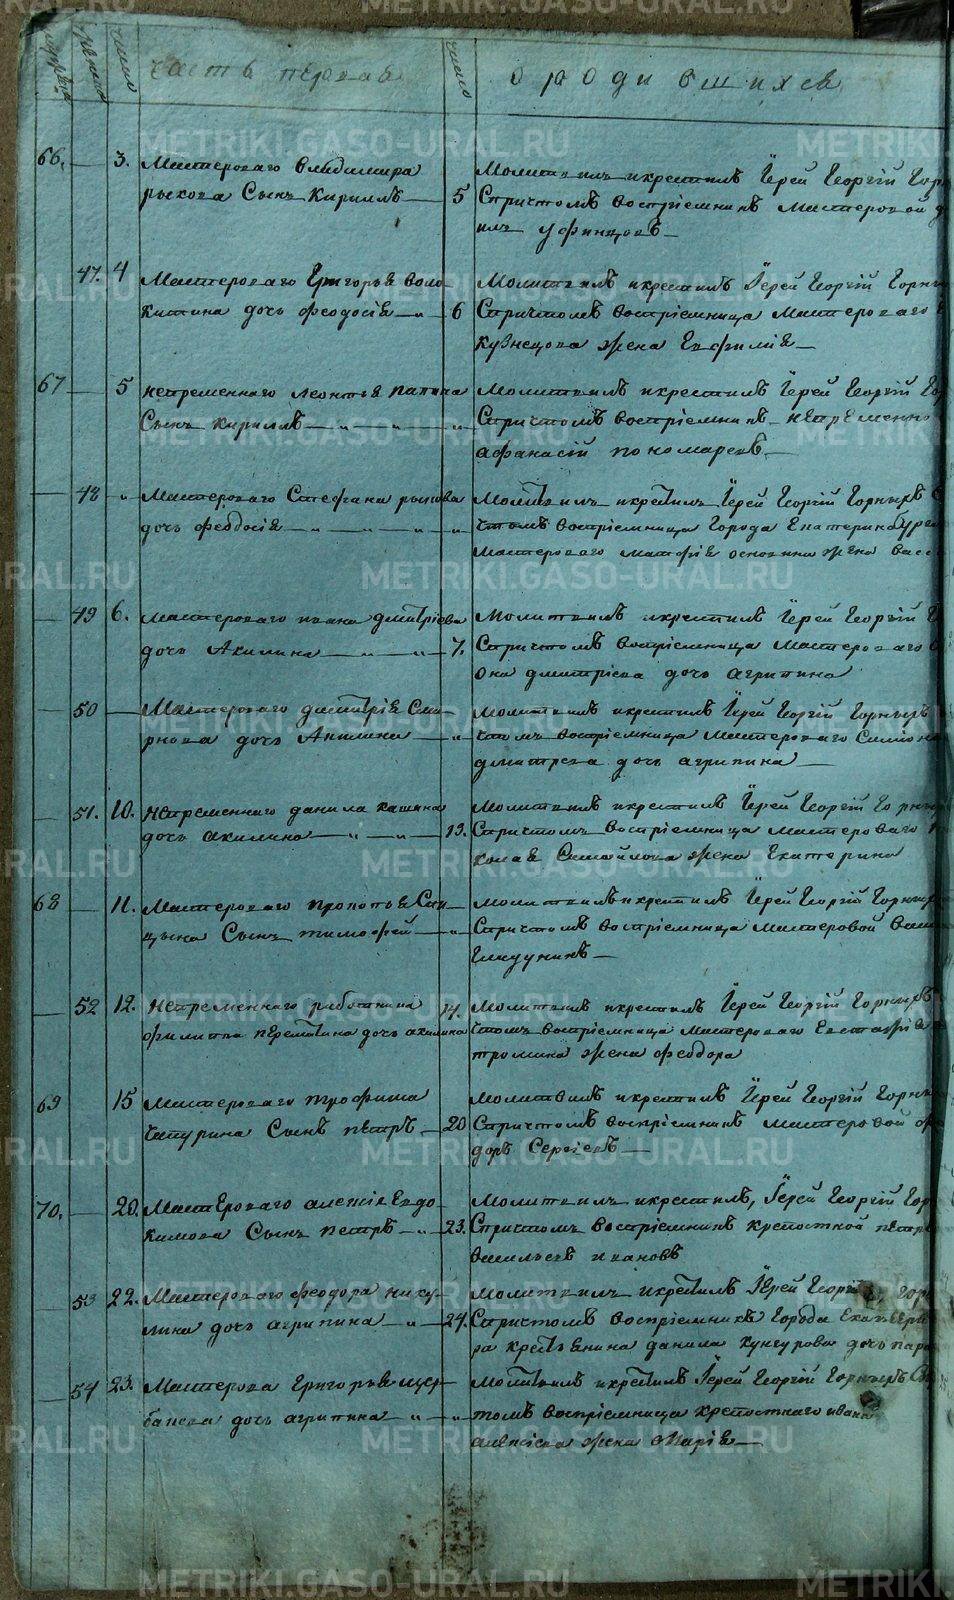 Часть первая
о родившихся
число
число
66. 3. Мастероваго Владимира
рыкова Сынъ Кириллъ 5
Молитвилъ икрестилъ Іерей Георгій
Спричтомъ воспріемникъ Мастеровой
Уфинцовъ
47. 4 Мастероваго Григорья Воло-
китина дочь Феодосія 6
Молитвилъ икрестилъ Іерей Георгій Горны
Спричтомъ воспріемница Мастероваго
Кузнецова жена Евфимія
67 5 непременнаго леонтья папина
Сынъ Кириллъ
Молитвилъ икрестилъ Іерей Георгій Гор
Спричтомъ воспріемникъ непременно
афанасій пономаревъ
48 Мастероваго Стефана рыкова
дочь Феодосія
Молитвилъ икрестилъ Іерей Георгій Горныхъ
чтомъ воспріемница Города Екатеринбурга
Мастероваго жена васс
49 6. Мастероваго ивана дмитріева
дочь Акилина 7.
Молитвилъ икрестилъ Іерей Георгій
Спричтомъ воспріемница Мастероваго
она дмитріева дочь агрипина
50 Мастероваго димитрія Сми-
рнова дочь Акилина
Молитвилъ икрестилъ Іерей Георгій Горныхъ
чтомъ воспріемница Мастероваго Симіона
дмитрева дочь агрипина
51. 10. непременнаго данила кашина
дочь акилина 13.
Молитвилъ икрестилъ Іерей Георгій Горных
Спричтомъ воспріемница мастероваго
колая Самойлова жена Екатерина
68 11. Мастероваго прокопья Спи-
цына Сынъ тимофей
молитвилъ икрестилъ Іерей Георгій Горных
Спричтомъ воспріемница Мастеровой
52 12. непременнаго работника
филипа дочь акилина 14.
Молитвилъ икрестилъ Іерей Георгій Горныхъ
чтомъ воспріемница Мастероваго Евстафія
тромина жена феодора
69 15 Мастероваго трофима
Чепурина Сынъ петръ 20
Молитвилъ икрестилъ Іерей Георгій Горны
Спричтомъ воспріемникъ мастеровой фео
доръ Сергіевъ
70. 20. Мастероваго алексія Евдо-
кимова Сынъ петръ 23.
Молитвилъ икрестилъ, Іерей Георгій Гор
Спричтомъ воспріемникъ крепостной петръ
васильевъ ивановъ
53 22. Мастероваго феодора нику-
лина дочь агрипина 24.
Молитвилъ икрестилъ Іерей Георгій Горн
Спричтомъ воспріемникъ Города
ра крестьянина данила кунгурова дочь пара
54 23. Мастерова Григорья щер-
бакова дочь агрипина
Молитвилъ икрестилъ Іерей Георгій Горныхъ
томъ воспріемница крепостнаго ивана
алексіева жена Марія
METRIKI.GASO-URAL.RU